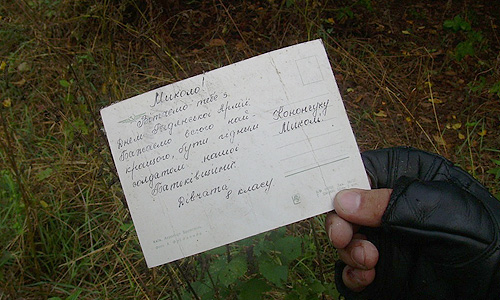 Миколо!
Вітаємо тебе з
Днем Радянської Армії.
Бажаємо всього най-
кращого, бути гідним
солдатом нашої
Батьківщини.
Дівчата 8 класу
Кононгуку
Миколі.